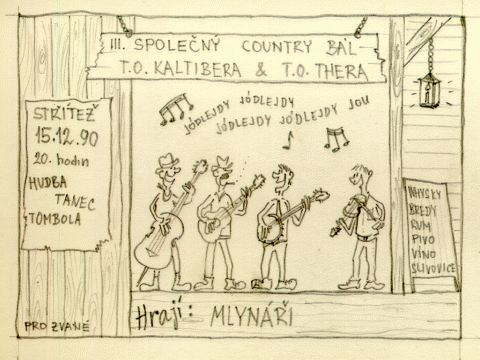 III. SPOLEČNÝ COUNTRY BÁL
T.O. KALTIBERA & T.O. THERA
JÓDLEJDY JÓDLEJDY
JÓDLEJDY JÓDLEJDY JOU
STŘÍTEŽ
15.12.90
20. hodin
HUDBA
TANEC
TOMBOLA
WHYSKY
BREDY
RUM
PIVO
VÍNO
SLIVOVICE
PRO ZVANÉ
Hrají: MLYNÁŘI